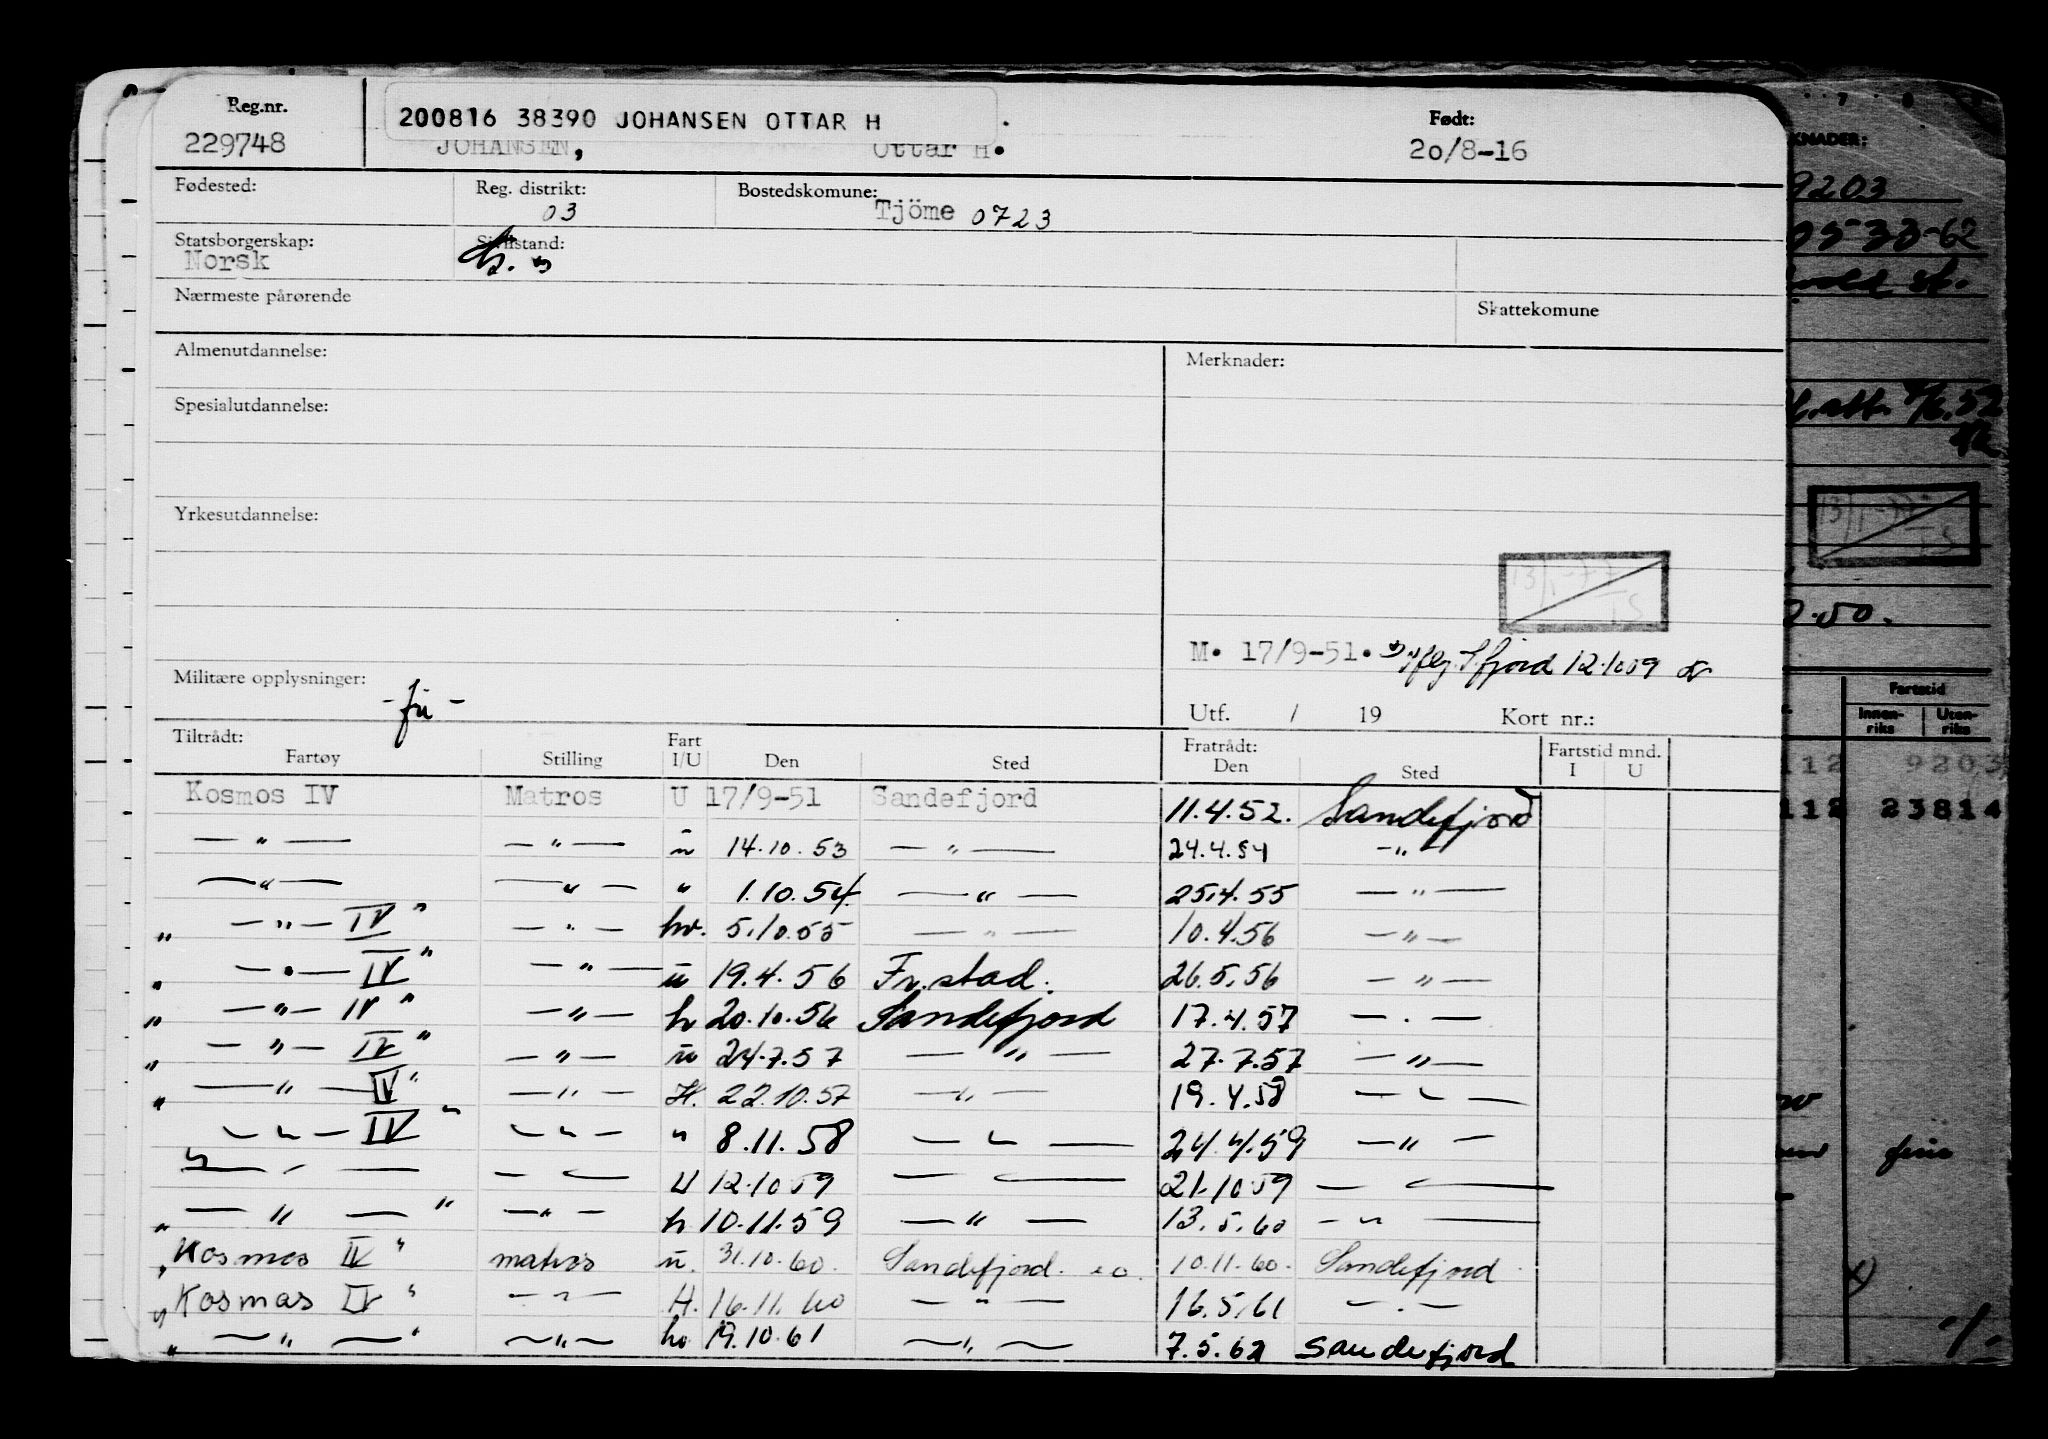 Reg.nr.
229748
200816 38390 JOHANSEN OTTAR H
JOHANSEN, Ottar H.
Født:
20/8-16
Fødested:
Reg. distrikt:
03
Bostedskomune:
Tjöme 0723
Statsborgerskap:
Norsk
Sivilstand:
Nærmeste pårørende
Skattekomune
Almenutdannelse:
Merknader:
Spesialutdannelse:
Yrkesutdannelse:
13/1-77
M. 17/9-51. S.fjord 12.1059
Militære opplysninger:
Utf. / 19 Kort nr.:
Tiltrådt:
Fartøy Stilling Fart I/U Den Sted
Fratrådt:
Den Sted
Fartstid mnd.
I U
Kosmos IV Matros U 17/9-51 Sandefjord 11.4.52. Sandefjord
— " — — " — " 14.10.53 — " — 24.4.54 — "
— " — — " — " 1.10.54 — " — 25.4.55 — " —
" — " — IV " — " — hv. 5.10.55 — " — 10.4.56 — " —
" — " — IV " — " — u 19.4.56 Fr.stad. 26.5.56 — " —
" — " — IV " — " — h 20.10.56 Sandefjord 17.4.57 — " —
" — " — IV " — " — u 24.7.57 — " — 27.7.57 — " —
" — " — IV " — " — H. 22.10.57 — " — 19.4.58 — " —
— " — IV " — " — " 8.11.58 — " — 24.4.59 — " —
— " — — " — U 12.1059 — " — 21.1059 — " —
" — " — " — " — h 10.11.59 — " — 13.5.60 — " —
" Kosmos IV " matros u. 31.10.60. Sandefjord. 10.11.60. Sandefjord
" Kosmas IV " — " — H. 16.11.60 — " — 16.5.61 — " —
" — " — " — " — hv 19.10.61 — " — 7.5.62 Sandefjord
KNADER:
9203
0533-62
4/6.52
13/1-77
Fartstid
Innen-riks Uten-riks
112 9203
112 23814